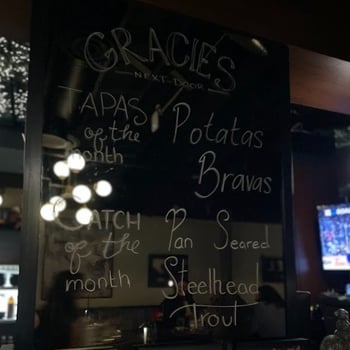 GRACIES
NEXT-DOOR
TAPAS
of the
month
Potatas
Bravas
CATCH
of the
month
Pan Seared
Steelhead
Trout